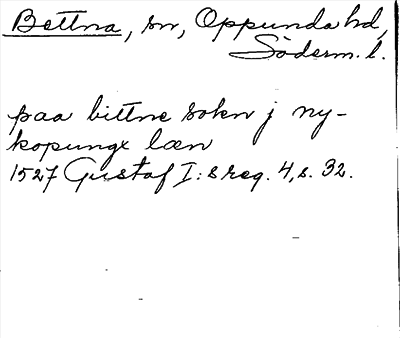 Bettna, sn, Oppunda hd,
Söderm. l.
paa bittne sokn j ny-
kopungx læn
1527 Gustaf I:s reg. 4, s. 32.